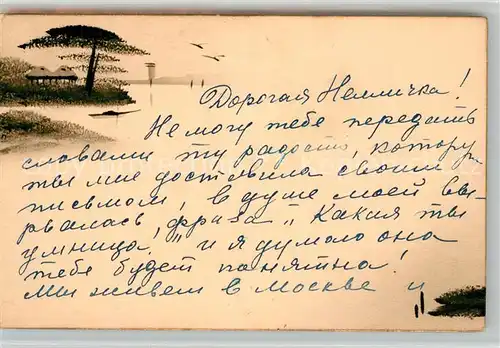 Дорогая Неличка!
Не могу тебе передать
словами ту радость, котору
ты мне доставила своим
письмом, в душе моей вы-
рвалась, фраза „Какая ты
умница," и я думаю она
тебе будет понятна!
Мы живем в Москве и